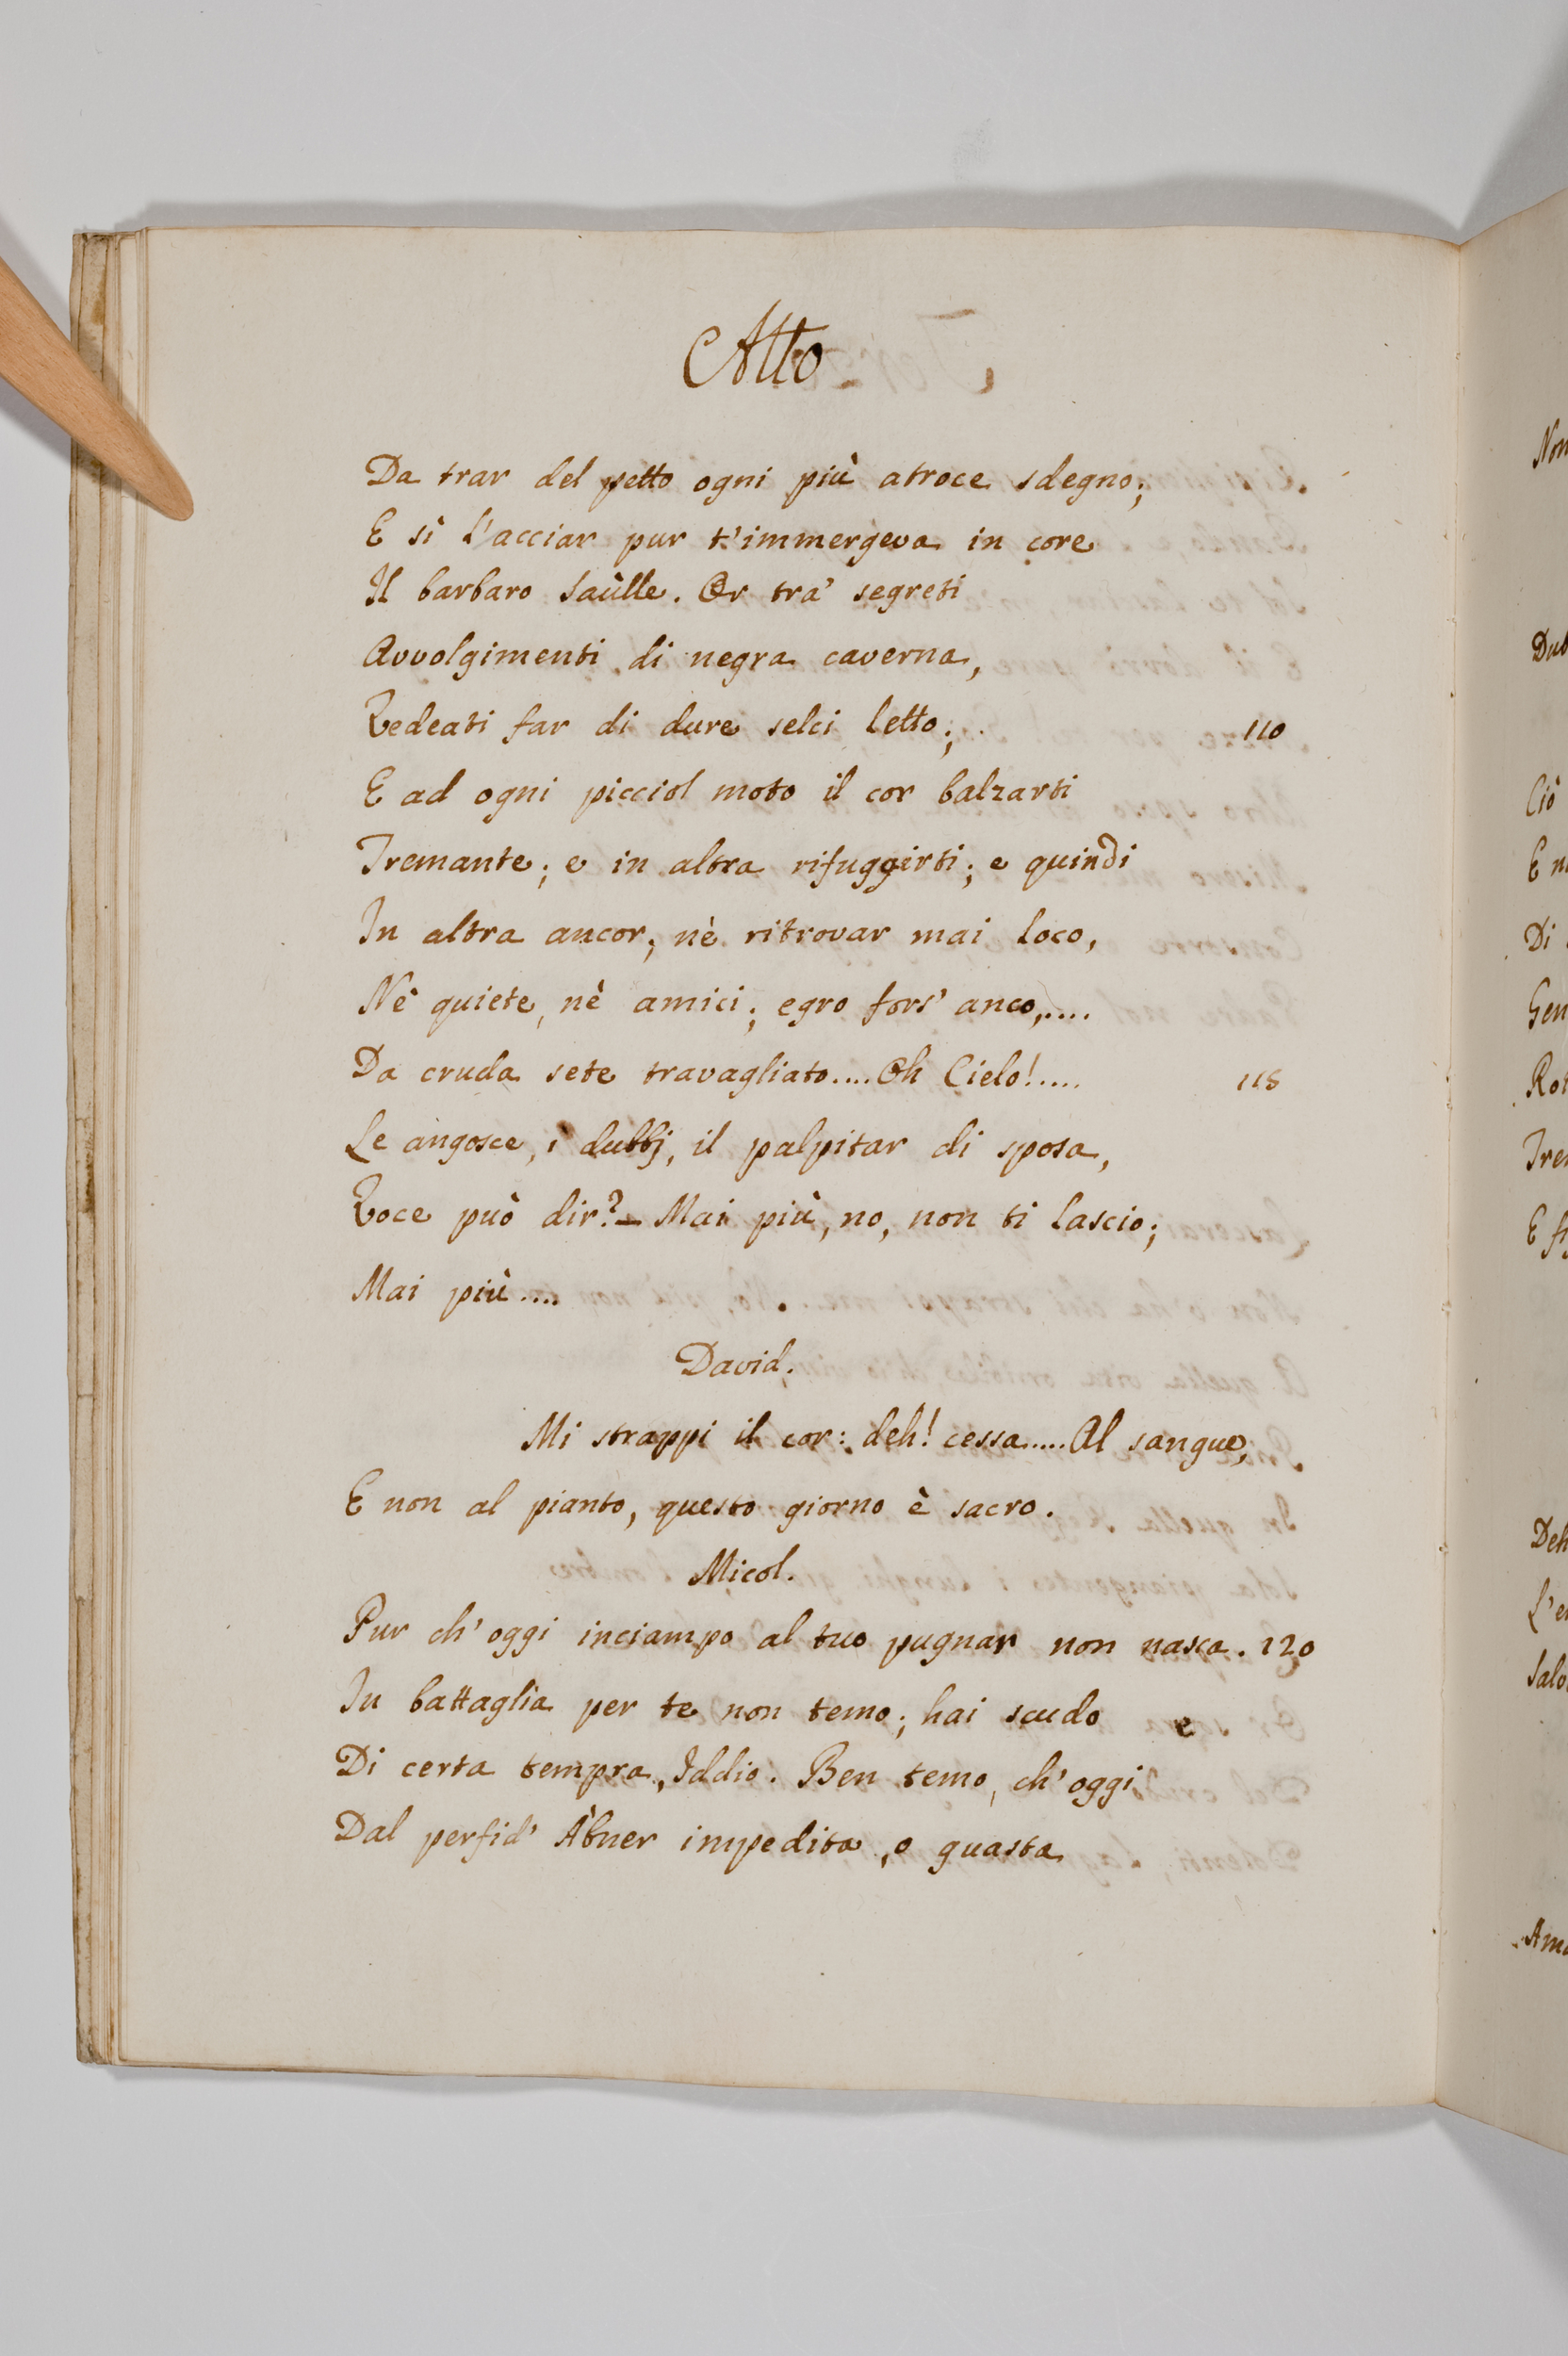 Atto
Da trar del petto ogni più atroce sdegno;
E sì l'acciar pur t'immergeva in core
Il barbaro Saùlle. Or tra' segreti
Avvolgimenti di negra caverna,
Vedeati far di dure selci letto; 110
E ad ogni picciol moto il cor balzarti
Tremante; e in altra rifuggirti; e quindi
In altra ancor; nè ritrovar mai loco,
Nè quiete, nè amici; egro fors' anco,....
Da cruda sete travagliato.... Oh Cielo!..... 115
Le angosce, i dubbj, il palpitar di sposa,
Voce può dir?- Mai più, no, non ti lascio;
Mai più....
David.
Mi strappi il cor: deh! cessa..... Al sangue,
E non al pianto, questo giorno è sacro.
Micol.
Pur ch' oggi inciampo al tuo pugnar non nasca. 120
In battaglia per te non temo; hai scudo
Di certa tempra, Iddio. Ben temo, ch' oggi
Dal perfid' Àbner impedita, o guasta
Non
Dub
Ciò
E n
Di
Gen
Rot
Tre
E f
Deh
L'e
Salo
Ama